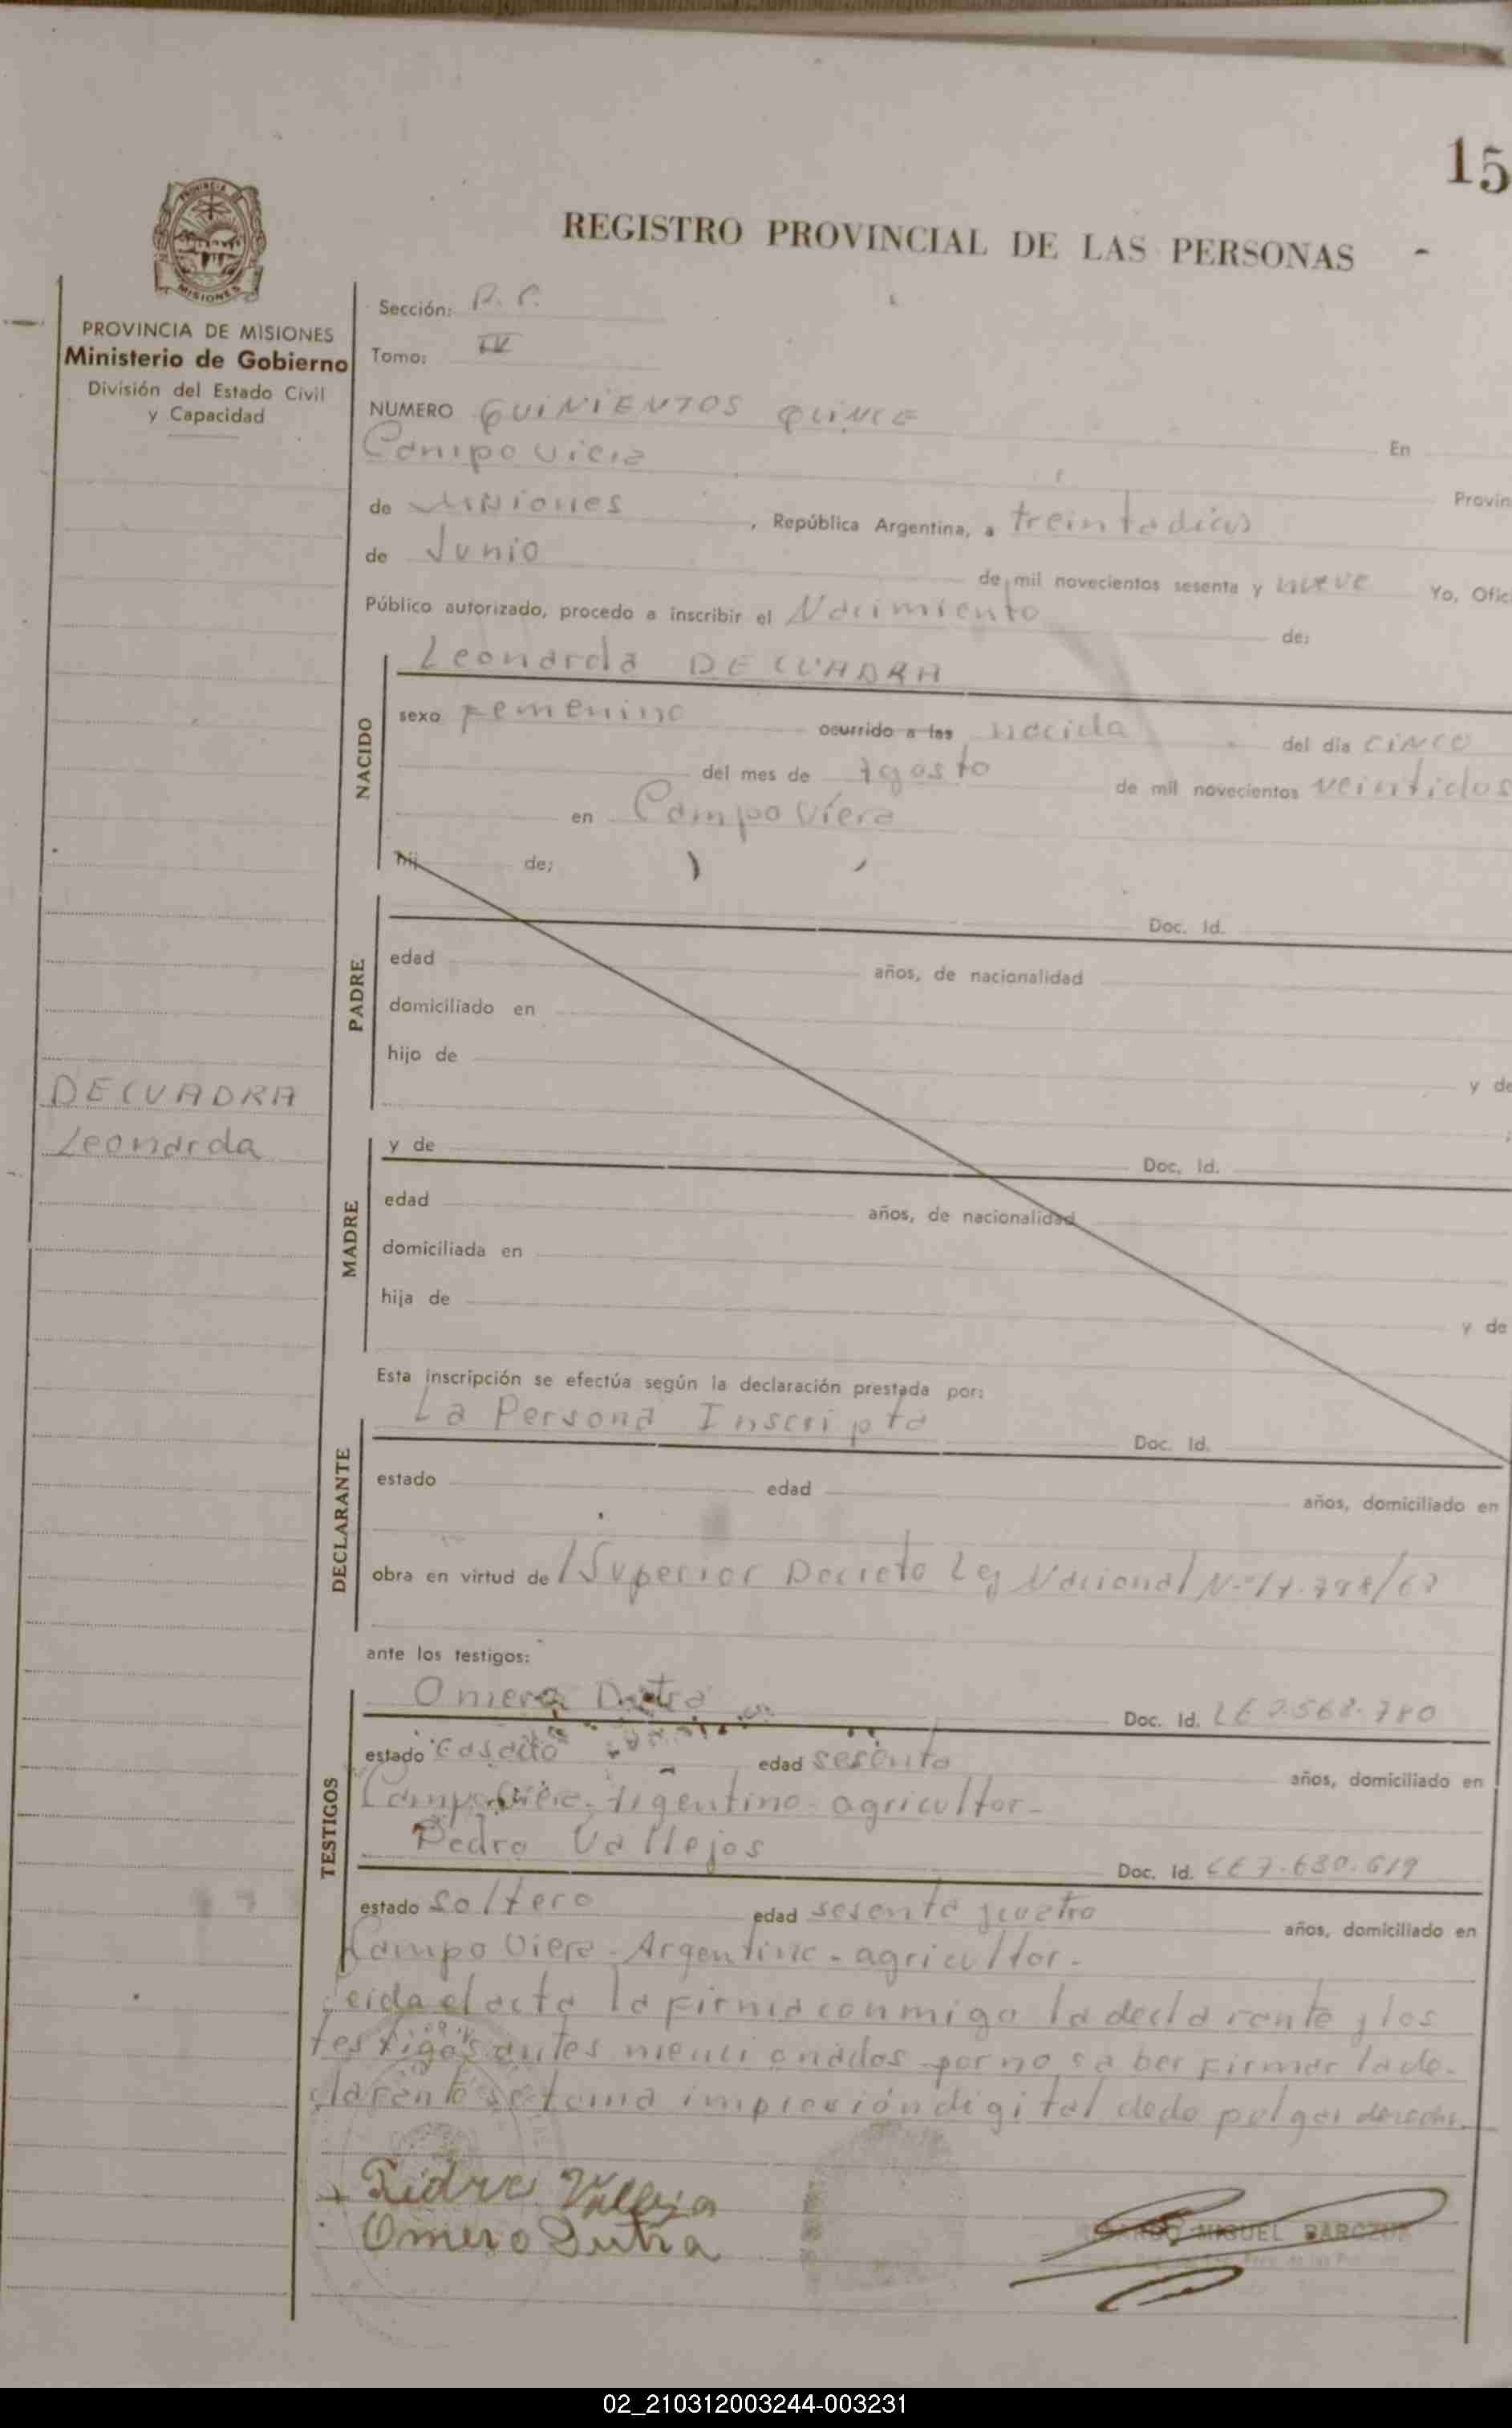 15
REGISTRO PROVINCIAL DE LAS PERSONAS -
PROVINCIA DE MISIONES
MISIONES
PROVINCIA DE MISIONES
Ministerio de Gobierno
División del Estado Civil
y Capacidad
Sección:
Tomo: IV
NUMERO QUINIENTOS QUINCE
En
Campo Viera
Provin
de Misiones, República Argentina, a treinta dias
de Junio de mil novecientos sesenta y nueve Yo, Ofic
Público autorizado, procedo a inscribir el Nacimiento de:
NACIDO
Leonarda DECUADRA
sexo femenino ocurrido a las nacida del día CINCO
del mes de Agosto de mil novecientos veintidos
en Campo Viera
hij de;
PADRE
Doc. Id.
edad años, de nacionalidad
domiciliado en
hijo de y de
DECUADRA
Leonarda
MADRE
y de Doc. Id.
edad años, de nacionalidad
domiciliada en
hija de y de
Esta inscripción se efectúa según la declaración prestada por:
DECLARANTE
La Persona Inscripta Doc. Id.
estado edad años, domiciliado en
obra en virtud de Superior Decreto Ley Nacional
ante los testigos:
TESTIGOS
Omero Dutra Doc. Id. LE 2.568.780
estado Casado edad sesenta años, domiciliado en
Campo Viera - Argentino - agricultor -
Pedro Vallejos Doc. Id. LE 7.630.619
estado soltero edad sesenta y cuatro años, domiciliado en
Campo Viera - Argentino - agricultor -
Leida el acta la firma conmigo la declarante y los
testigos antes mencionados por no saber firmar la de-
clarante se toma impresión digital dedo pulgar derecho.
Pedro Vallejos
Omero Dutra
MIGUEL BARCZUK
02_210312003244-003231